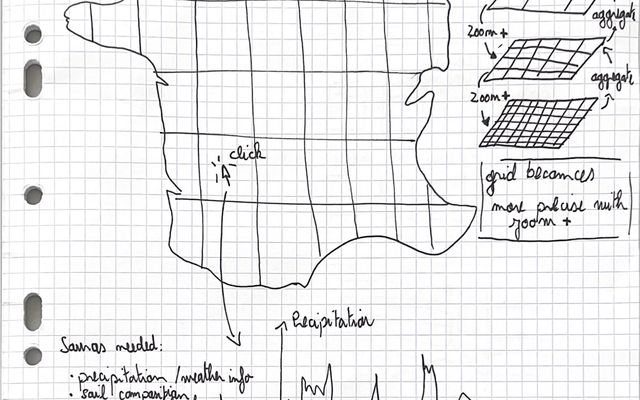 aggregate
zoom +
aggregate
zoom +
click
grid becomes
more precise with
zoom +
Precipitation
needed:
• precipitation / weather info
• soil composition